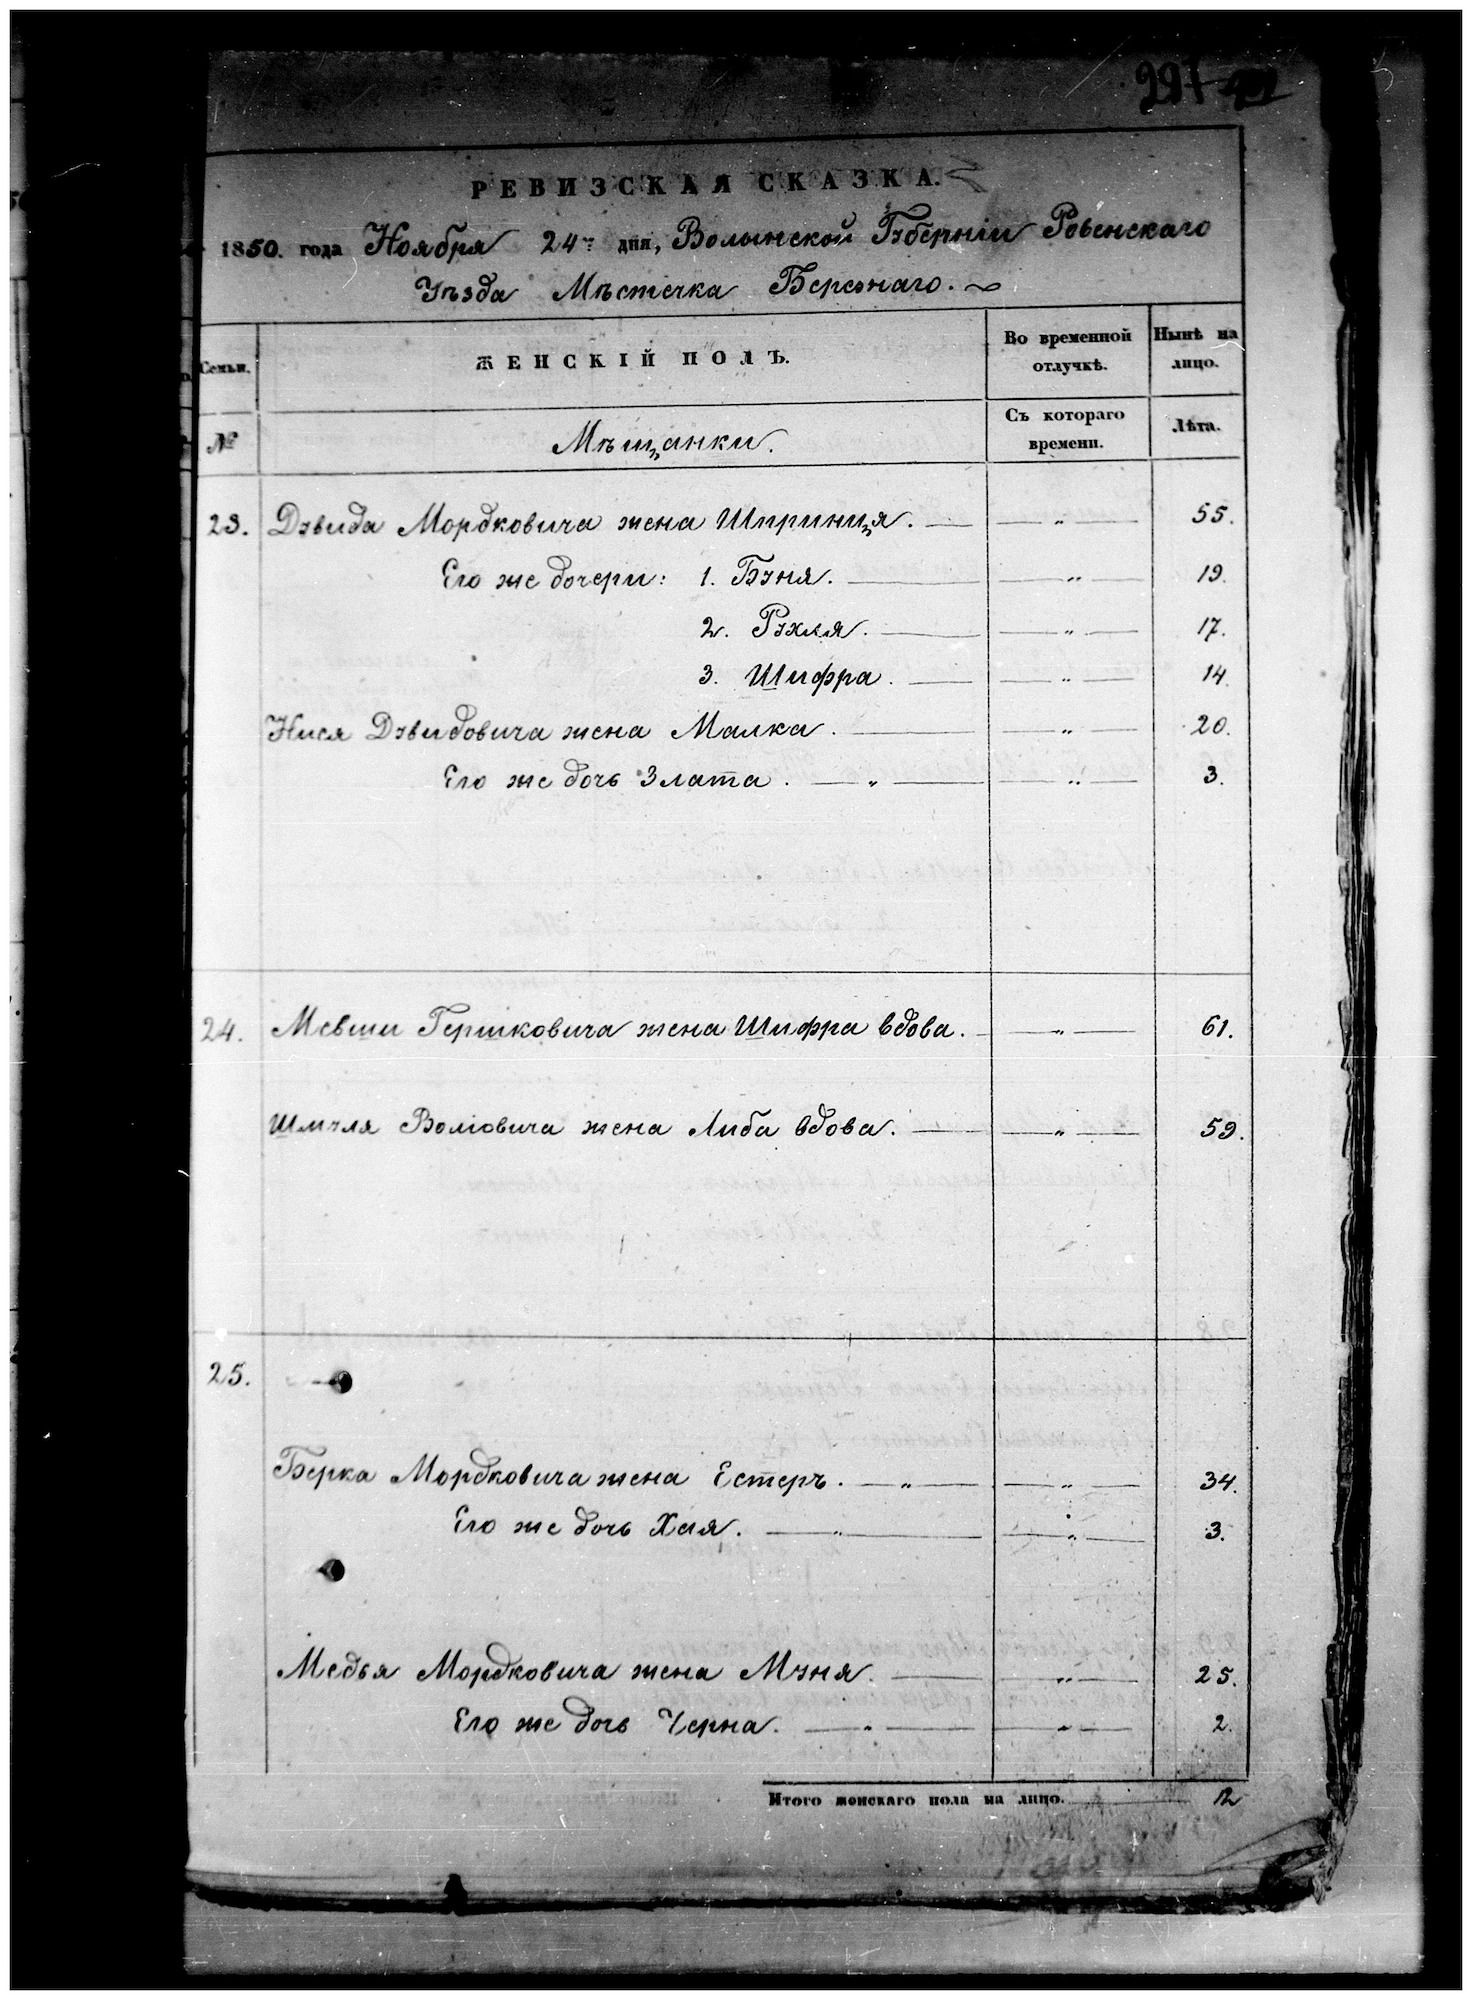 297
РЕВИЗСКАЯ СКАЗКА.
1850. года Ноября 24 дня, Волынской Губерніи Ровенскаго
Уѣзда Мѣстечка Березнаго.
Семьи. ЖЕНСКІЙ ПОЛЪ. Во временной отлучкѣ. Нынѣ на лицо.
№ Мѣщанки. Съ котораго времени. Лѣта.
23. Дувида Мордковича жена Шприница. — „ — 55.
Его же дочери: 1. Буня. — „ — 19.
2. Рухля. — „ — 17.
3. Шифра. — „ — 14.
Нися Дувидовича жена Малка. — „ — 20.
Его же дочь Злата. — „ — „ — 3.
24. Мевши Гершковича жена Шифра вдова. — „ — 61.
Шмуля Волковича жена Либа вдова. — „ — 59.
25.
Берка Мордковича жена Естеръ. — „ — „ — 34.
Его же дочь Хая. — „ — „ — 3.
Медья Мордковича жена Муня. — „ — 25.
Его же дочь Черна. — „ — „ — 2.
Итого женскаго пола на лицо. 12